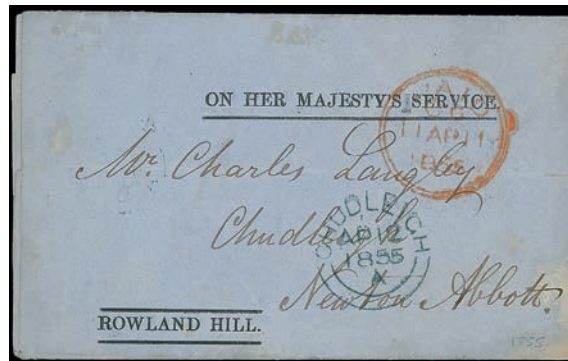 ON HER MAJESTY'S SERVICE.
PAID
11 AP 11
1855
Mr. Charles Langley
Chudleigh
CHUDLEIGH
AP 12
1855
A
Newton Abbott.
ROWLAND HILL.
1855.